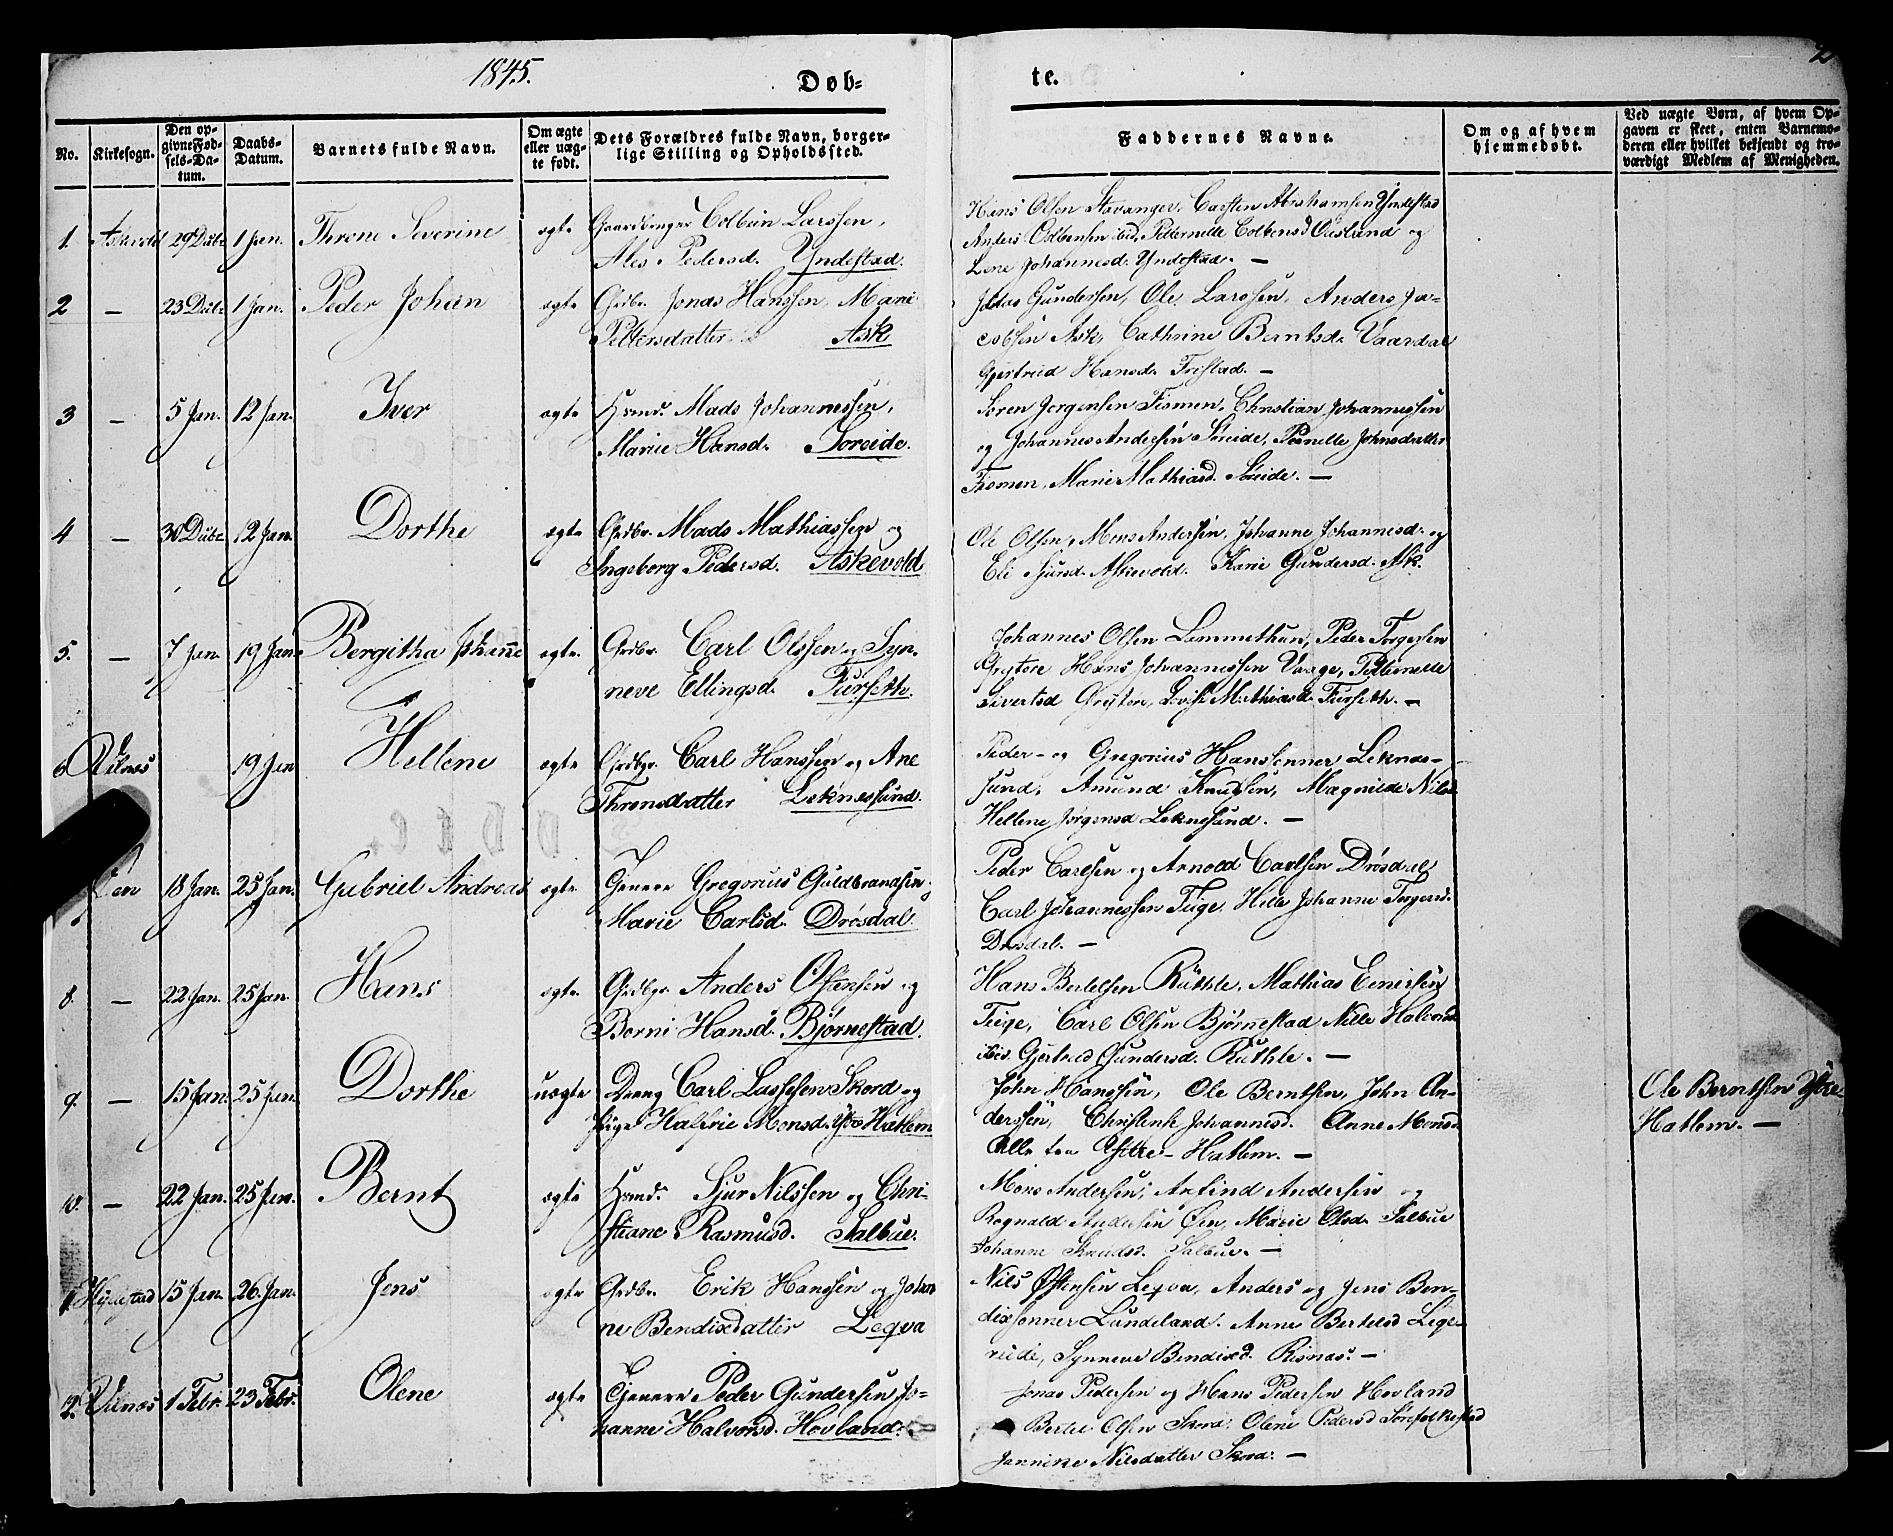 1845.
2
Døb-
te.
No.
Kirkesogn.
Den op-
givne Fød-
sels-Da-
tum.
Daabs-
Datum.
Barnets fulde Navn.
Om ægte
eller uæg-
te født.
Dets Forældres fulde Navn, borger-
lige Stilling og Opholdssted.
Faddernes Navne.
Om og af hvem
hjemmedøbt.
Ved uægte Børn, af hvem Op-
gaven er skeet, enten Barnemo-
deren eller hvilket bekjendt og tro-
værdigt Medlem af Menigheden.
1. Askevold 29 Dcbr 1 Jan. Throne Severine ægte Gaardbruger Colbein Larssen,
Ales Pedersd. Yndestad.
Hans Olsen Stavanger, Carsten Abrahamsen Yndestad
Anders Colbensen ibid, Petternelle Colbensd Ousland og
Lene Johannesd. Yndestad. —
2 — 23 Dcbr 1 Jan. Peder Johan ægte Grdbr. Jonas Hanssen, Mari
Pettersdatter Ask
Gundersen, Ole Larssen, Anders Ja-
cobsen Ask, Cathrine Berntsd. Vaardal
Gjertrud Hansd. Fristad. —
3 — 5 Jan. 12 Jan. Iver ægte Hsmd. Mads Johannessen,
Marie Hansd. Soreide.
Søren Jørgensen Tismen, Christian Johannessen
og Johannes Andersen Søreide, Pernelle Johnsdatter
Marie Mathiasd. Søreide. —
4 — 30 Dcbr 12 Jan. Dorthe ægte Grdbr. Mads Mathiassen og
Ingeborg Pedersd. Askevold
Ole Olsen, Mons Andersen, Johanne Johannesd. og
Eli Sjursd. Askevold. Karie Gundersd. Ask.
5. — 7 Jan. 19 Jan. Bergitha Johanne ægte. Grdbr. Carl Olssen og Syn-
neve Ellingsd. Furseth.
Johannes Olsen Lammethun, Peder Torgersen
Grytøre Hans Johannessen Vaage, Petternelle
Sivertsd Grytøre, Lovise Mathiasd. Furseth. —
6. Vilnæs 19 Jan Hellene ægte Grdbgr. Carl Hanssen og Ane
Thronsdatter Leknessund.
Peder- og Gregorius Hanssønner Leknes-
sund, Amund Knudsen, Magnilde Nilsd
Hellene Jørgensd Leknesund. —
Øen 18 Jan. 25 Jan. Gabriel Andreas ægte Gevorb. Gregorius Guldbrandsen
Marie Carlsd. Drøsdal.
Peder Carlsen og Arnold Carlsen Drøsdal
Carl Johannessen Teige. Hille Johanne Torgersd.
Drøsdal. —
8. — 22 Jan. 25 Jan. Hans ægte. Grdbgr. Anders Ostensen og
Borni Hansd. Bjørnestad.
Hans Bertelsen Ruthle, Mathias Einersen
Teige, Carl Olsen Bjørnestad Nille Halvorsd
ibid. Gjertrud Gundersd. Ruthle. —
9. — 15 Jan. 25 Jan. Dorthe uægte Dreng Carl Lassesen Skord og
Pige Halfrie Monsd. Ytre Hatlem
John Hanssen, Ole Berntsen, John An-
derssen, Christense Johannesd. Anne Monsd
Alle fra Yttre-Hatlem. —
Ole Berntsen Ytre-
Hatlem. —
10. — 22 Jan. 25 Jan. Bernt ægte Hsmd. Sjur Nilssen og Chri-
stiane Rasmusd. Salbue.
Mons Andersen, Arfind Andersen og
Rognald Andersen Øen, Marie Olsd. Salbue
Johanne Knudsd. Salbue. —
11. Hyllestad 15 Jan. 26 Jan. Jens ægte Grdbr. Erik Hanssen og Johan
ne Bendixdatter Leqva
Nils Østensen Leqva, Anders og Jens Ben-
dixsønner Lundeland. Anne Bertelsd Lige-
rude, Synneve Bendixd. Risnæs. —
12. Vilnæs 1 Febr. 23 Febr. Olene ægte Peder Gundersen Jo-
hanne Halvorsd. Hovland.
Jonas Pedersen og Hans Pedersen Hovland
Bertel Olsen Skord. Olene Pedersd Sørefolkestad
Jannike Nilsdatter Skord. —